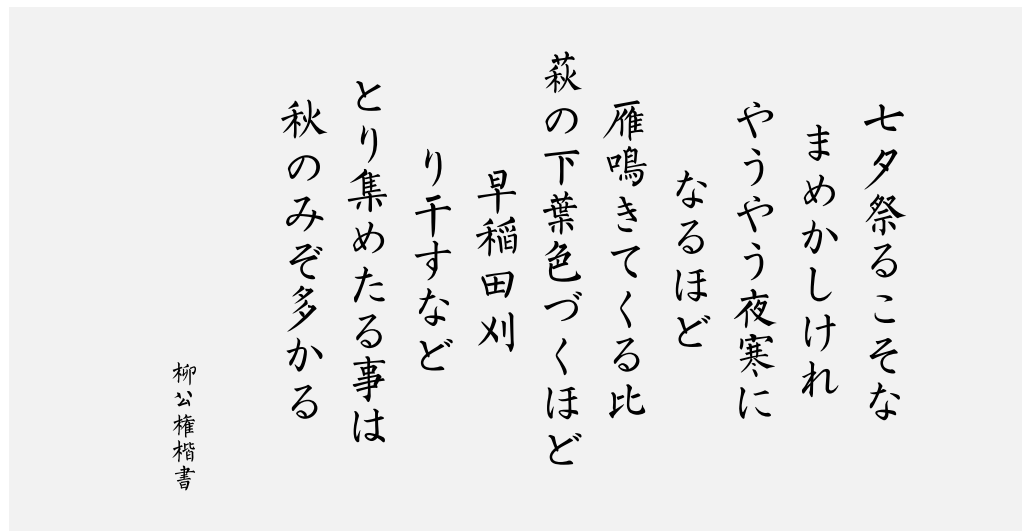 七夕祭るこそな
まめかしけれ
やうやう夜寒に
なるほど
雁鳴きてくる比
萩の下葉色づくほど
早稲田刈
り干すなど
とり集めたる事は
秋のみぞ多かる
柳公権楷書